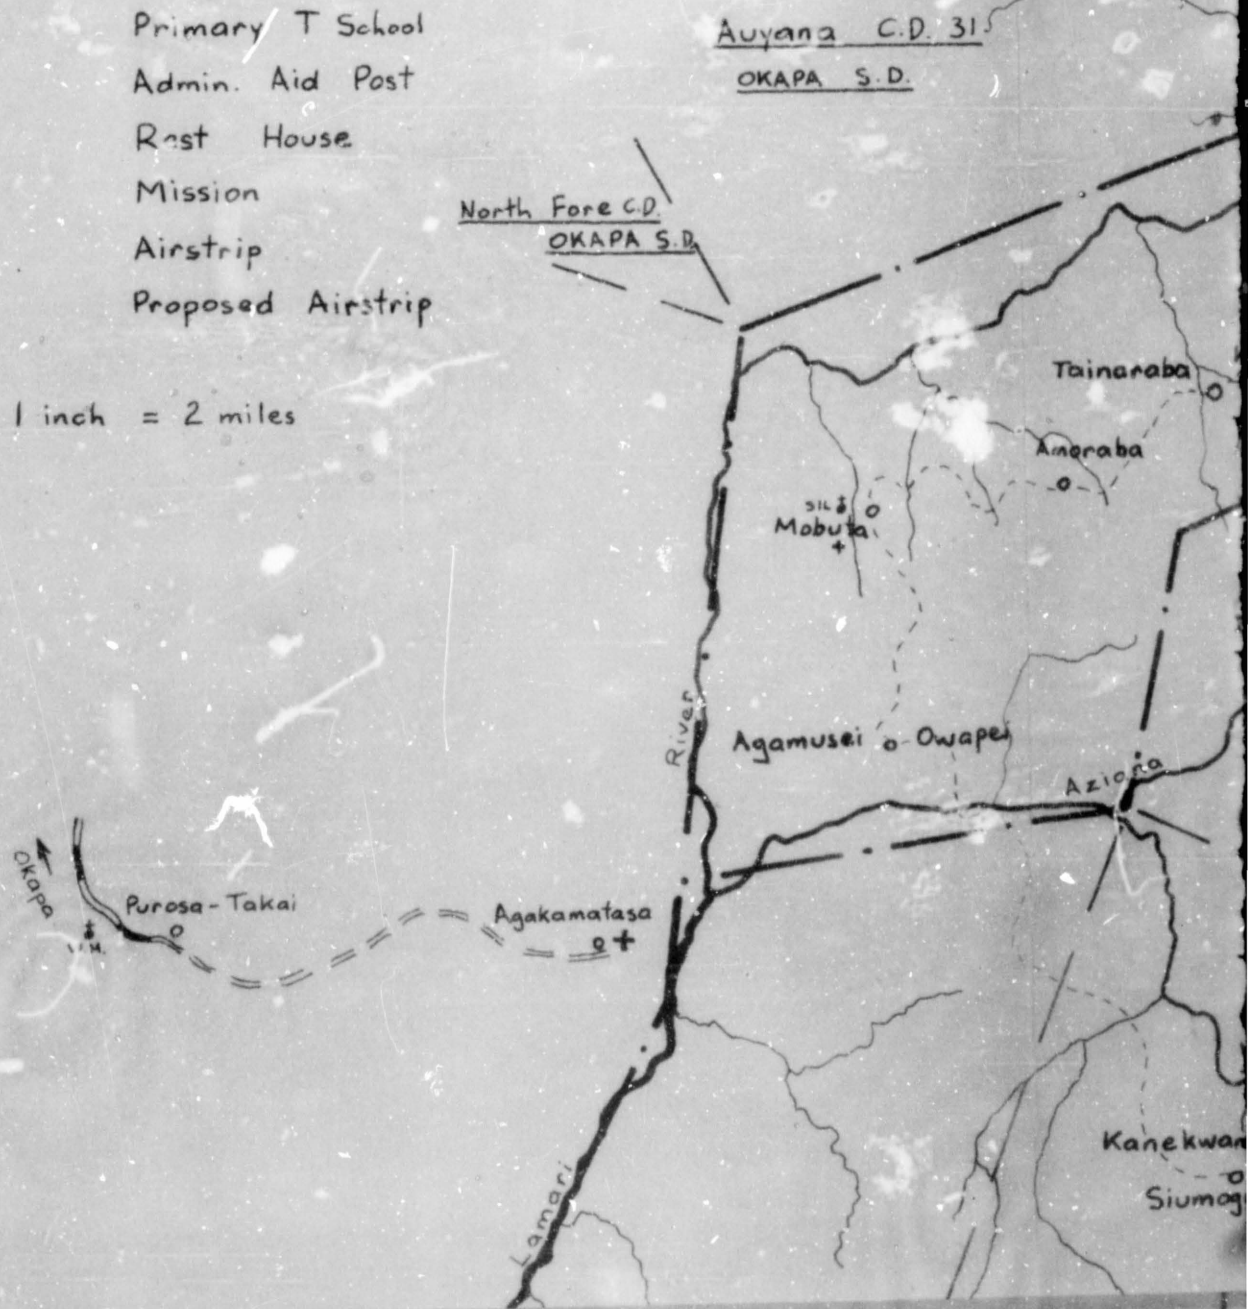 Primary T School
Admin. Aid Post
Rest House
Mission
Airstrip
Proposed Airstrip
1 inch = 2 miles
Auyana C.D. 31
OKAPA S.D.
North Fore C.D.
OKAPA S.D.
Tainaraba
Amoraba
SIL
Mobuta
River
Agamusei
Owapei
Aziana
Okapa
Purosa-Takai
Agakamatasa
Kanekwan
Siumog
Lamari